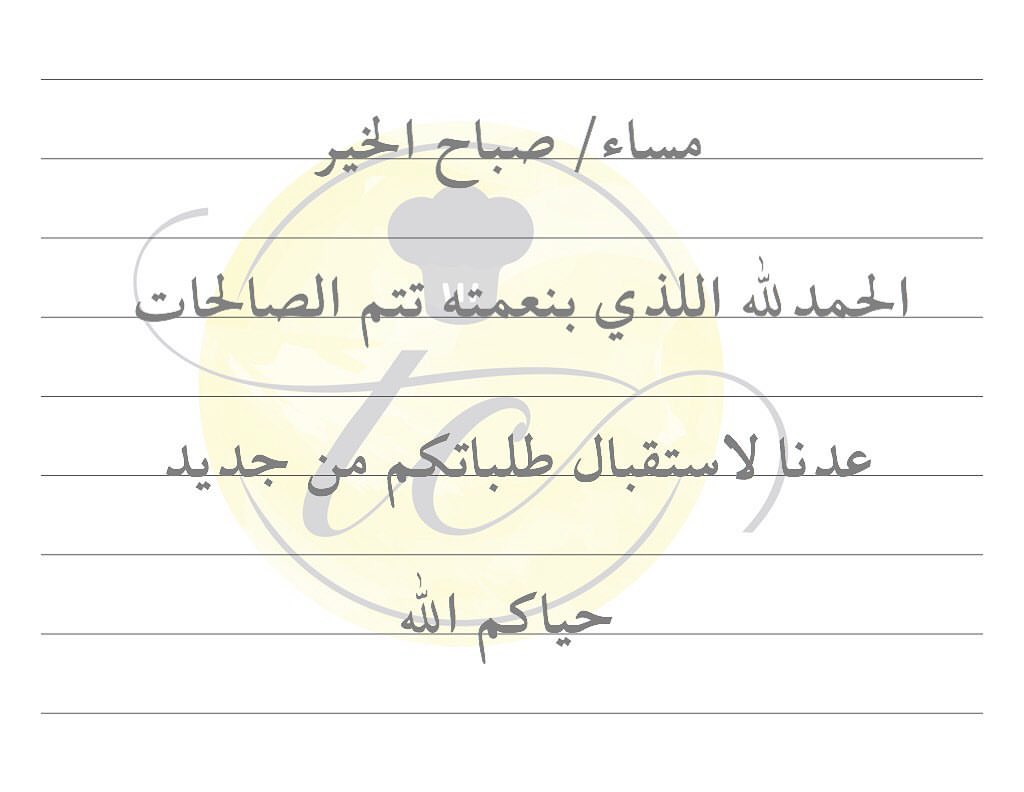 مساء/ صباح الخير
الحمدلله اللذي بنعمته تتم الصالحات
tc
عدنا لاستقبال طلباتكم من جديد
حياكم الله